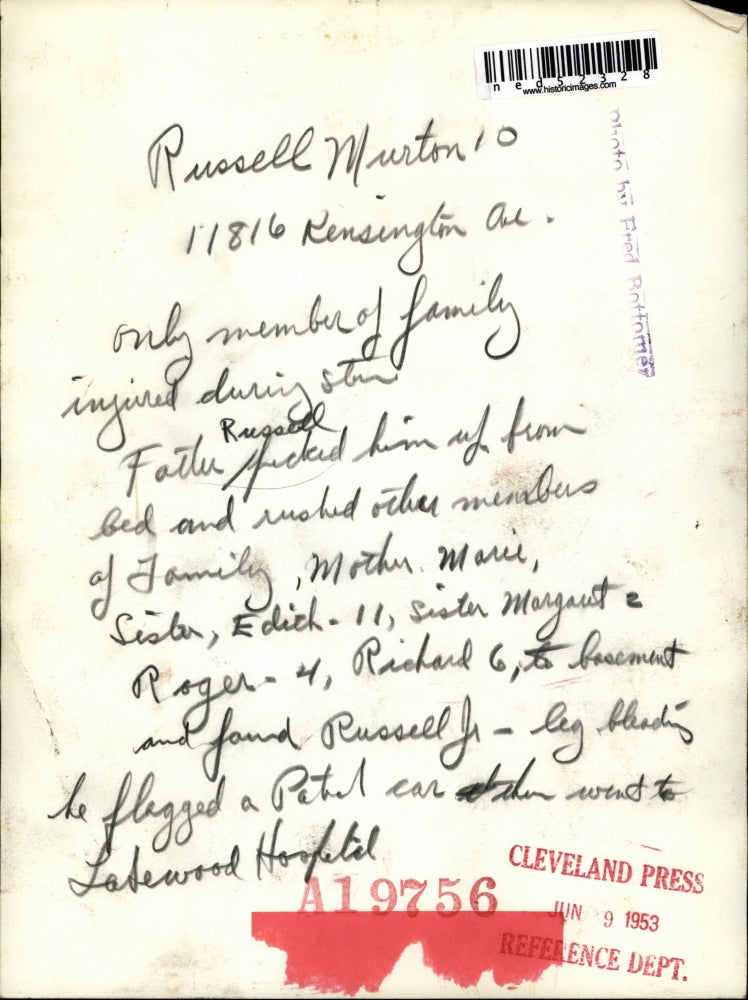 ned52328
www.historicimages.com
photo by Fred Bottomer
Russell Murton 10
11816 Kensington Ave.
only member of family
injured during storm
Russell
Father picked him up from
bed and rushed other members
of Family, Mother. Marie,
Sister, Edith - 11, sister Margaret 2
Roger - 4, Richard 6, to basement
and found Russell Jr - leg bleeding
he flagged a Patrol car then went to
Lakewood Hospital
A19756
CLEVELAND PRESS
JUN 9 1953
REFERENCE DEPT.